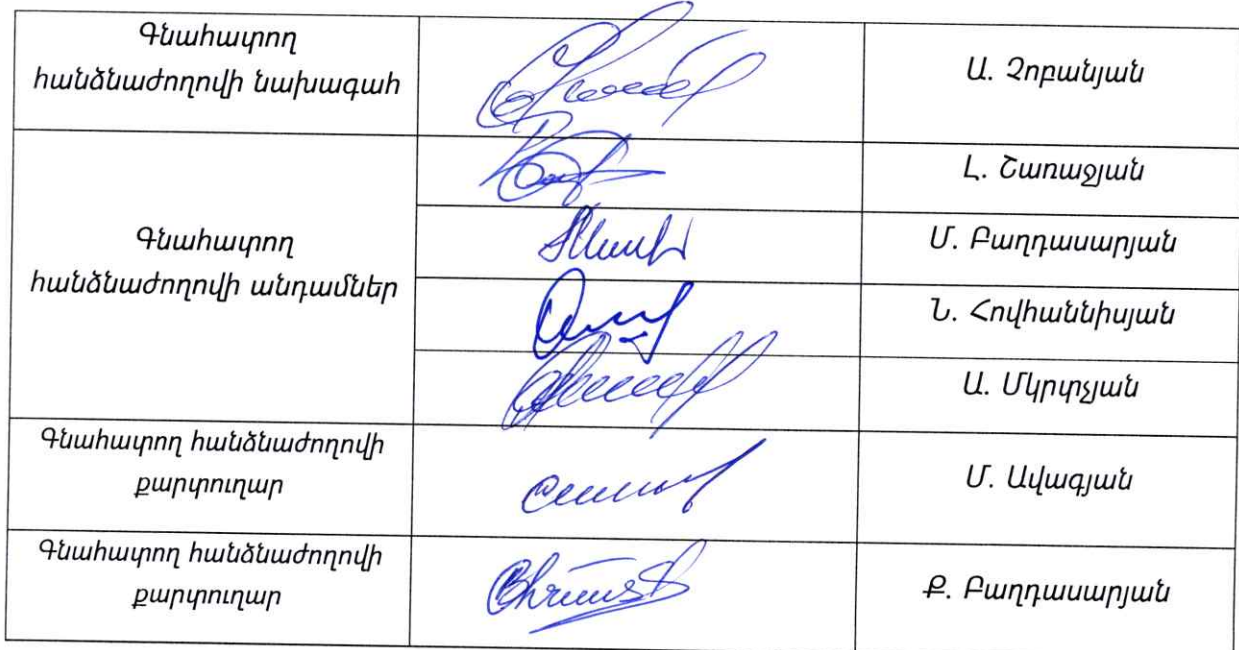 Գնահատող
հանձնաժողովի նախագահ
Ա. Չոբանյան
Գնահատող
հանձնաժողովի անդամներ
Լ. Շառաջյան
Մ. Բաղդասարյան
Ն. Հովհաննիսյան
Ա. Մկրտչյան
Գնահատող հանձնաժողովի
քարտուղար
Մ. Ավագյան
Գնահատող հանձնաժողովի
քարտուղար
Ք. Բաղդասարյան